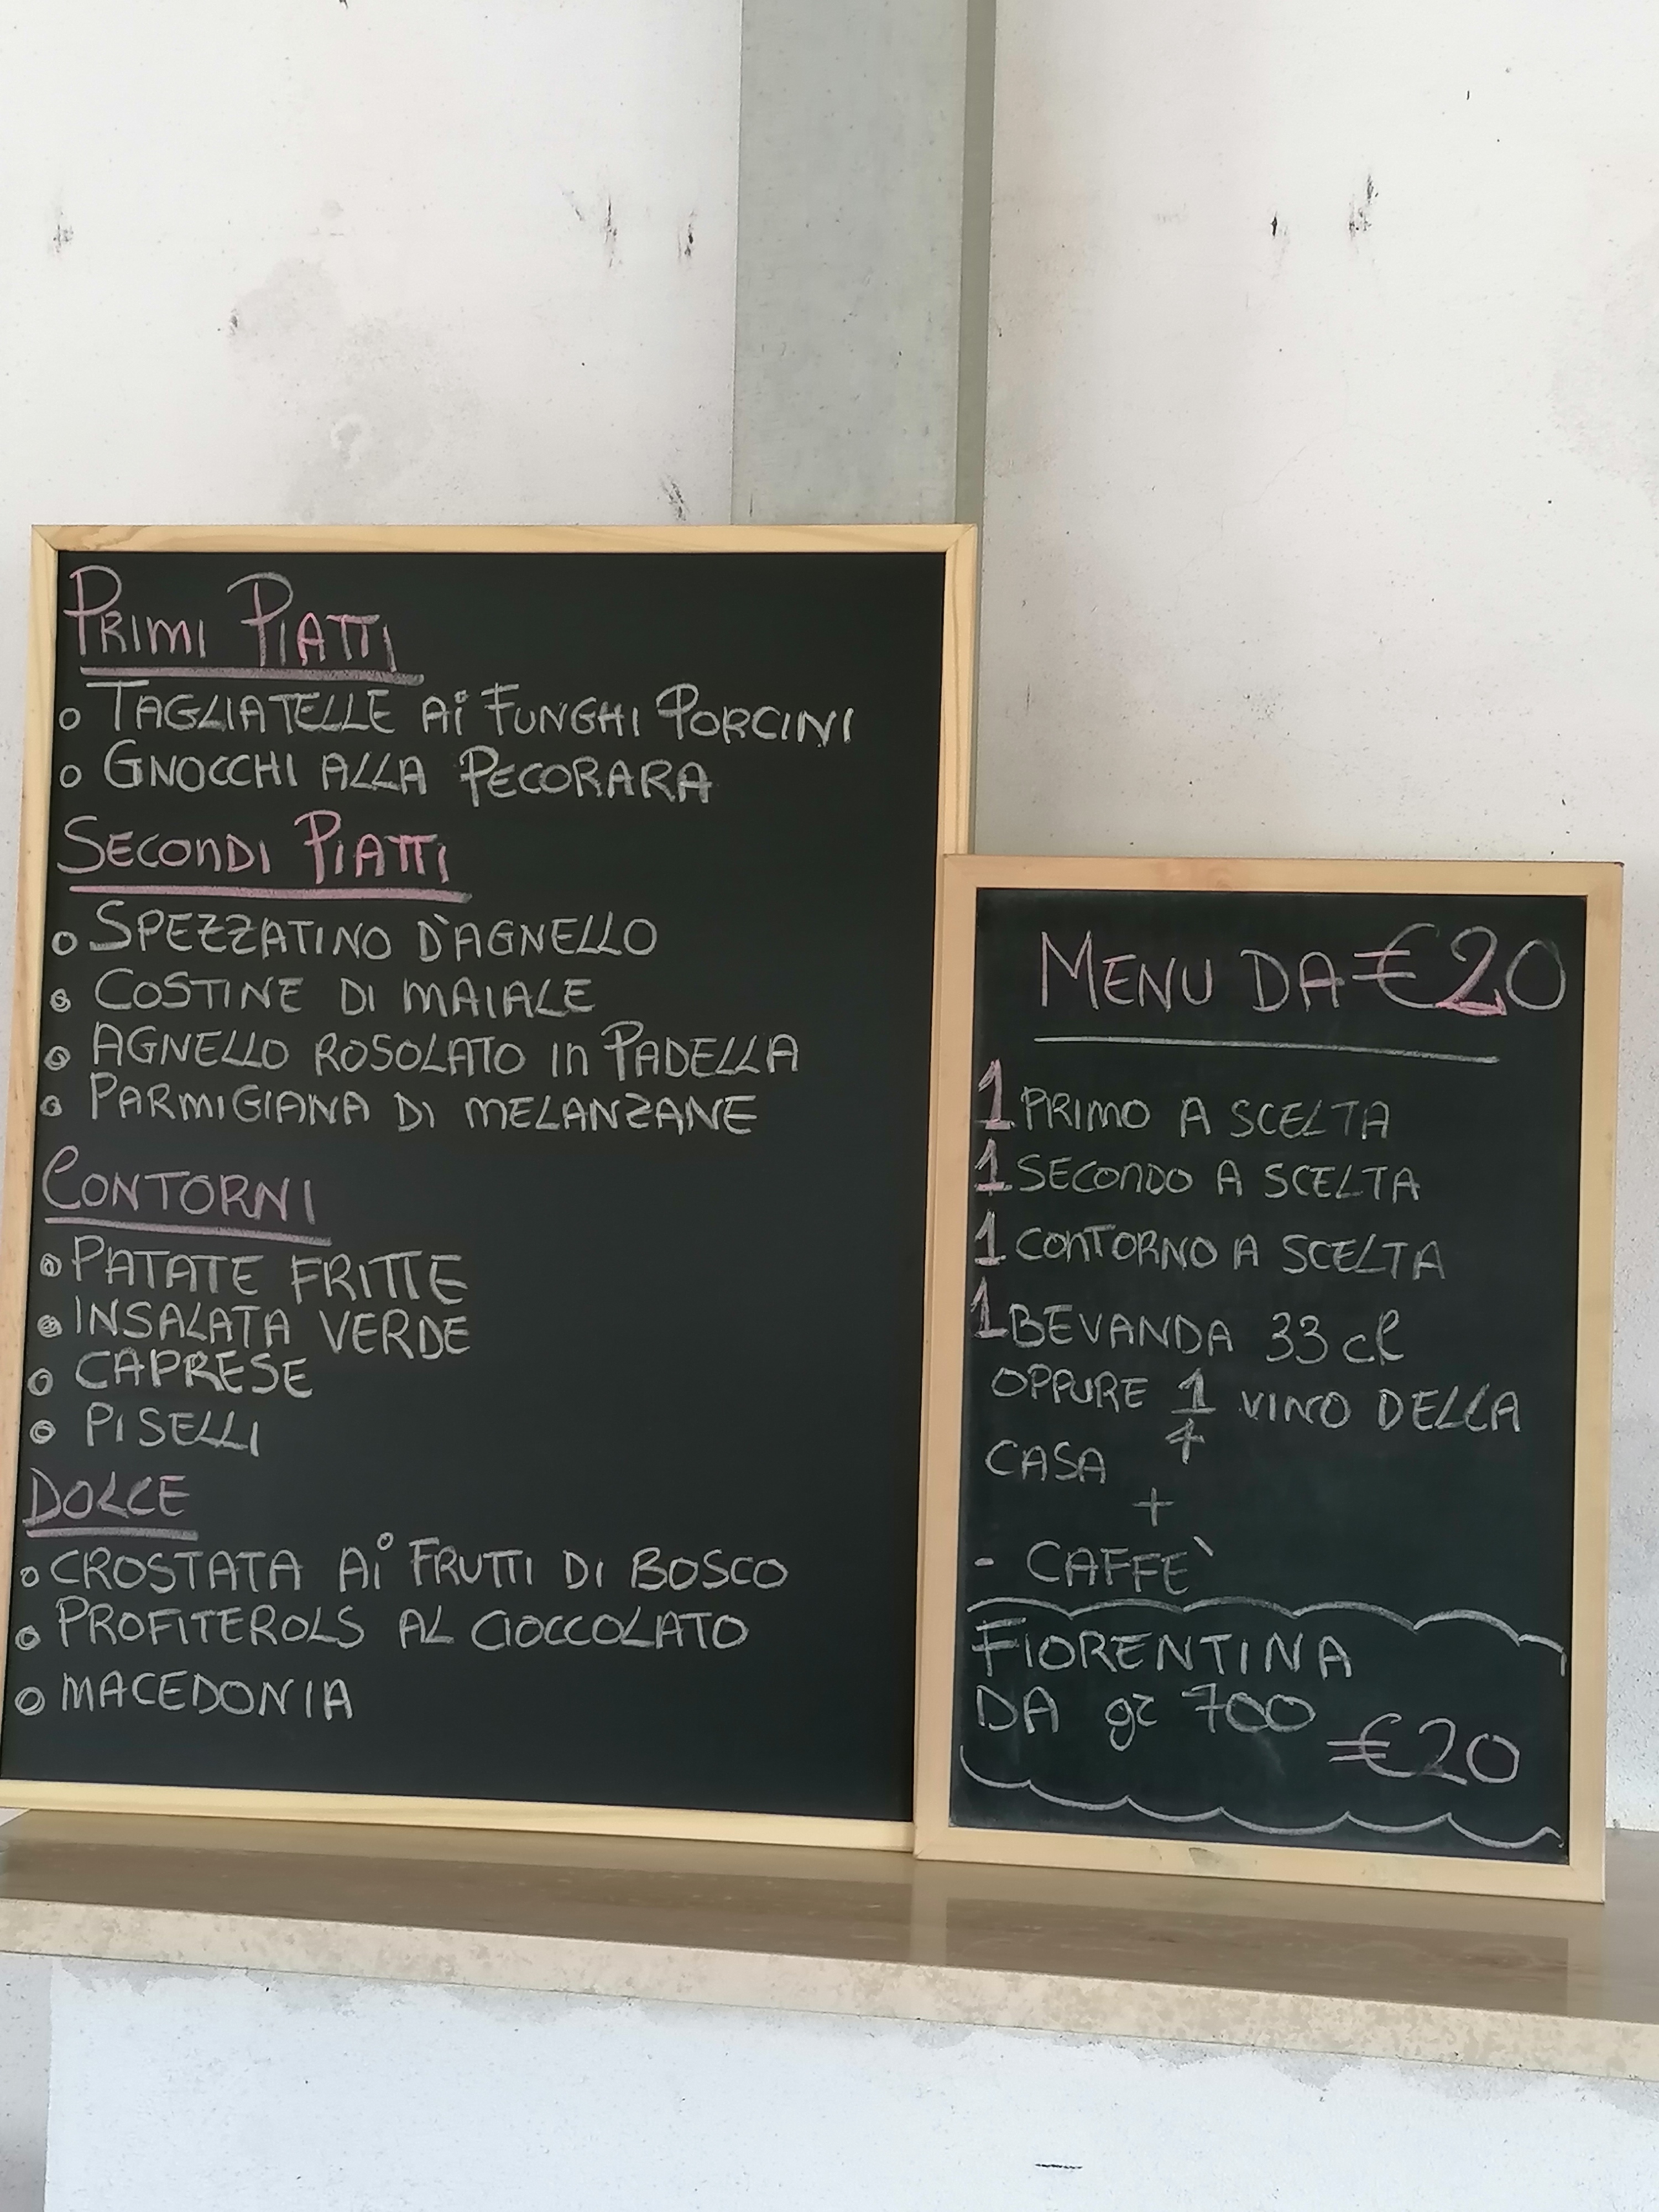 PRIMI PIATTI
TAGLIATELLE Ai FUNGHI PORCINI
GNOCCHI ALLA PECORARA
SECONDI PIATTI
SPEZZATINO D'AGNELLO
COSTINE DI MAIALE
AGNELLO ROSOLATO in PADELLA
PARMIGIANA Di MELANZANE
CONTORNI
PATATE FRITTE
INSALATA VERDE
CAPRESE
PISELLI
DOLCE
CROSTATA Ai FRUTTI DI BOSCO
PROFITEROLS AL CIOCCOLATO
MACEDONIA
MENU DA €20
1 PRIMO A SCELTA
1 SECONDO A SCELTA
1 CONTORNO A SCELTA
1 BEVANDA 33 cl
OPPURE 1/4 VINO DELLA
CASA
+
- CAFFE'
FIORENTINA
DA gr 700
€20